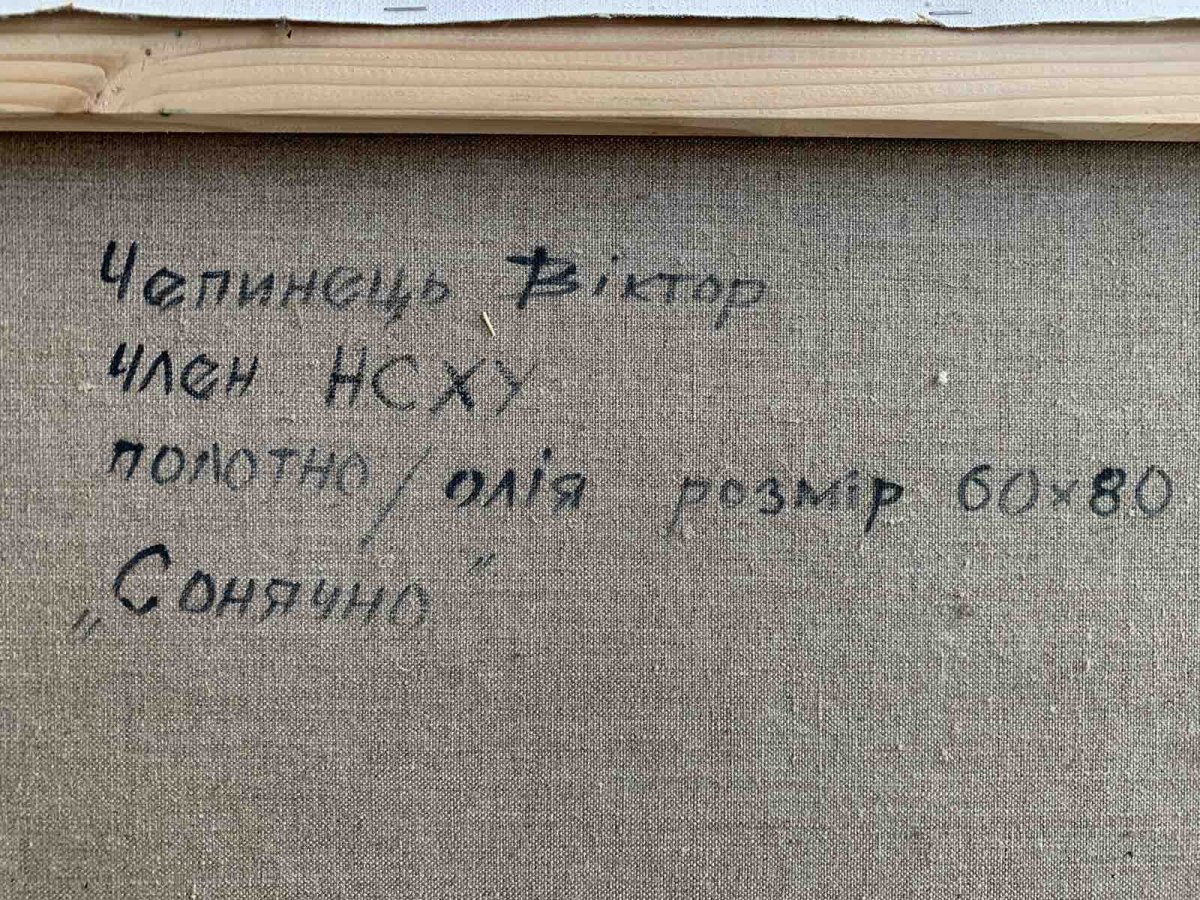 Чепинець Віктор
член НСХУ
полотно / олія розмір 60х80
„Сонячно”